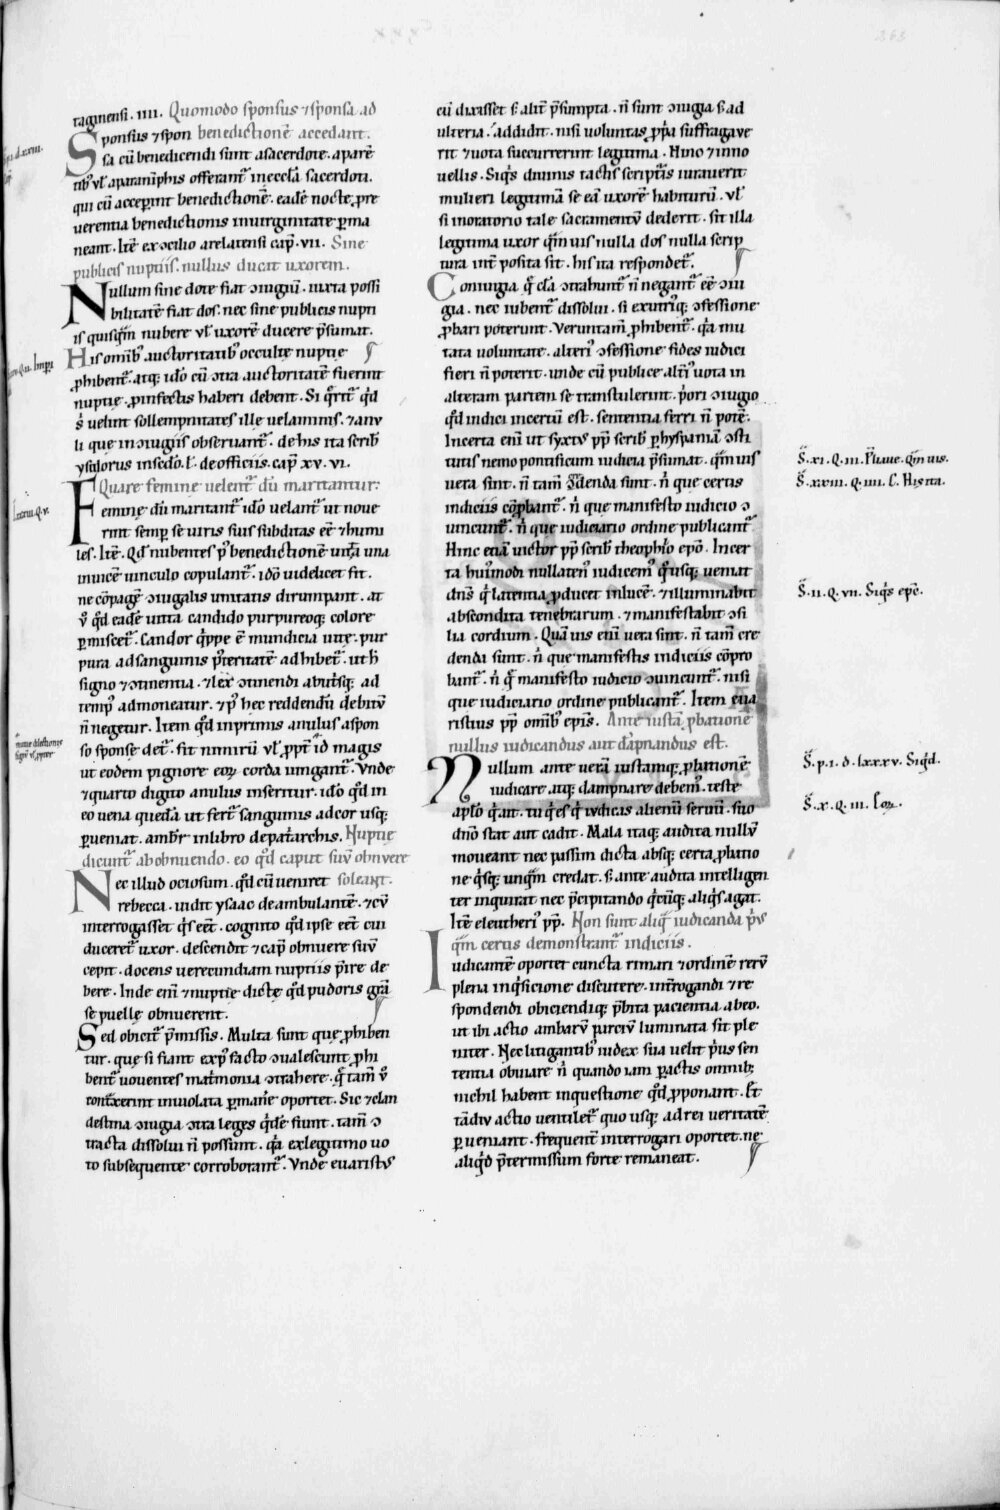 taginensi. IIII. Quomodo sponsus ⁊ sponsa ad
Sponsus ⁊ spon benedictionē accedant.
sa cū benedicendi sunt a sacerdote. a parē
tibꝰ vł a paranīphis offerant᷑ in eccła sacerdoti.
qui cū acceperint benedictionē. eadē nocte p̱ re
uerentia benedictionis in uirginitate ꝑma
neant. Itē ex ɔcilio arelatensi cap̄. vii. Sine
publicis nuptiis. nullus ducat uxorem.
Nullum sine dote fiat ɔiugiū. iuxta possi
bilitatē fiat dos. nec sine publicis nupti
is quisq̄m nubere vł uxorē ducere p̄sumat.
His omībꝰ auctoritatibꝰ occulte nuptie
ꝓhibent᷑. atq; idō cū ɔtra auctoritatē fuerint
nuptie, ꝓ infectis haberi debent. Si q̄rit᷑ qd̄
s̄ uelint sollempnitates ille uelaminis. ⁊ anu
li que in ɔiugiis obseruant᷑. de his ita scribit
ysidorus in secdō. l. de officiis. cap̄ xv. vi.
Quare femine uelent᷑ dū maritantur.
Femine dū maritant᷑ idō uelant᷑ ut noue
rint semꝑ se uiris suis subditas eē ⁊ humi
les. Itē. Qd̄ nubentes p̄ benedictionē uitta una
inuicē uinculo copulant᷑. idō uidelicet fit.
ne cōpagē ɔiugalis unitatis dirumpant. at
v̊ qd̄ eadē uitta candido purpureoq; colore
ꝑmiscet᷑. Candor q̄ppe ē mundicia uite. pur
pura ad sanguinis p̄teritatē adhibet᷑. ut h̄
signo ⁊ ɔtinentia. ⁊ lex ɔtinendi ab utrisq; ad
tempꝰ admoneatur. ⁊ pꝰ hec reddendū debitū
ñ negetur. Item qd̄ inprimis anulus a spon
so sponse det᷑. fit nimirū vł ꝓpt᷑ id̄ magis
ut eodem pignore eoꝝ corda iungant᷑. Vnde
⁊ quarto digito anulus inseritur. idō qd̄ in
eo uena quedā ut fert᷑ sanguinis ad cor usq;
ꝑueniat. ambr̄ in libro de pat᷑archis. Nuptie
dicunt᷑ ab obnuendo. eo qd̄ caput suū obnvere
Nec illud ociosum. qd̄ cū ueniret soleant.
rebecca. uidit ysaac deambulantē. ⁊ cū
interrogasset q̄s eet᷑. cognito qd̄ ipse eet᷑ cui
duceret᷑ uxor. descendit ⁊ cap̄ obnuere suū
cepit. docens uerecundiam nuptiis p̄ire de
bere. Inde eni᷑ ⁊ nuptie dicte qd̄ pudoris grā
se puelle obnuerent.
Sed obicit᷑ p̄missis. Multa sunt que ꝓhiben
tur. que si fiant ex pꝰ facto ɔualescunt ꝓhi
bent᷑ uouentes mat᷑monia ɔtrahere. q̄ tam̄ v̊
contxerint inuiolata ꝑmanē oportet. Sic ⁊ clan
destina ɔiugia ɔtra leges q̄dē fiunt. tam̄ ɔ
tracta dissolui ñ possunt. q̄a ex legitimo uo
to subsequente corroborant᷑. Vnde euaristꝰ
cū dixisset s̄ alit᷑ p̄sumpta. ñ sunt ɔiugia s̄ ad
ulteria. addidit. nisi uoluntas ꝓp̄a suffragaue
rit ⁊ uota succurrerint legitima. Hinc ⁊ in no
uellis. Siq̄s diuinis tactis scriptis iurauerit
mulieri legitimā se eā uxorē habiturū. vł
si in oratorio tale sacramentū dederit. sit illa
legitima uxor q̄muis nulla dos nulla scrip
tura int᷑posita sit. his ita respondet᷑.
Coniugia q̄ clā ɔtrahunt᷑ ñ negant᷑ eē ɔiu
gia. nec iubent᷑ dissolui. si ex utriq; ɔfessione
ꝓbari poterunt. Veruntam̄ ꝓhibent᷑. q̄a mu
tata uoluntate. alteriꝰ ɔfessione fides iudici
fieri ñ poterit. unde cū publice alt᷑iꝰ uota in
alteram partem se transtulerint. p̄ori ɔiugio
qd̄ iudici incertū est. sententia ferri ñ potē.
Incerta eni᷑ ut syxtꝰ pp̄ scribit ꝑ hyspaniā ɔsti
tutis nemo pontificum iudicia p̄sumat. q̄muis
uera sint. ñ tam̄ c̄denda sunt. ñ que certis
indiciis cōprobant᷑. ñ que manifesto iudicio ɔ
uincunt᷑. ñ que iudiciario ordine publicant᷑.
Hinc etiā victor pp̄ scribit theophilo epō. Incer
ta huiꝰmodi nullatenꝰ iudicemꝰ q̊usq; ueniat
dn̄s q̄ latentia ꝓducet in lucē. ⁊ illuminabit
abscondita tenebrarum. ⁊ manifestabit ɔsi
lia cordium. Quāuis eni᷑ uera sint. ñ tam̄ cre
denda sunt. ñ que manifestis indiciis cōpro
bant᷑. ñ q̄ manifesto iudicio ɔuincunt᷑. nisi
que iudiciario ordine publicant᷑. Item eua
ristius pp̄ omibꝰ epis. Ante iustā ꝓbationē
nullus iudicandus aut dāpnandus est.
Nullum ante uerā iustamq; ꝓbationē
iudicare aut dampnare debemꝰ. teste
aplō q̄ ait. tu q̄s es q̄ iudicas alienū seruū. suo
dn̄o stat aut cadit. Mala itaq; audita nullū
moueant nec passim dicta absq; certa ꝓbatio
ne q̄sq; unq̄m credat. s̄ ante audita intelligen
ter inquirat nec p̄cipitando q̄cūq; aliq̄s agat.
Itē eleutheriꝰ pp̄. Non sunt aliq̄ iudicanda pꝰ
q̄m certis demonstrant᷑ indiciis.
Iudicantē oportet cuncta rimari ⁊ ordinē rerū
plena inq̄sicione discutere. int᷑rogandi ⁊ re
spondendi obiciendiq; p̄bita pacientia ab eo.
ut ibi actio ambarū parciū luminata sit ple
niter. Nec litigantibꝰ iudex sua uelit pꝰus sen
tentia obuiare ñ quando iam ꝑactis omnib;
nichil habent in questione qd̄ ꝓponant. Et
tādiu actio uentilet᷑ quo usq; ad rei ueritatē
ꝑueniant. frequent᷑ interrogari oportet. ne
aliqd̄ p̄termissum forte remaneat.
S̄. xi. Q. iii. Plane. Qm̄uis.
S̄. xxiii. Q. iiii. C. His ita.
S̄. ii. Q. vii. Siq̄s epc̄.
S̄. p. i. d. lxxxv. Siqd̄.
S̄. x. Q. iii. Eoꝝ.